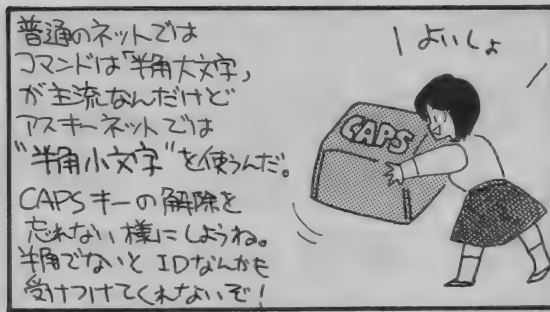 普通のネットでは
コマンドは「半角大文字」
が主流なんだけど
アスキーネットでは
"半角小文字"を使うんだ。
CAPSキーの解除を
忘れない様にしようね。
半角でないとIDなんかも
受けつけてくれないぞ!
よいしょ
CAPS